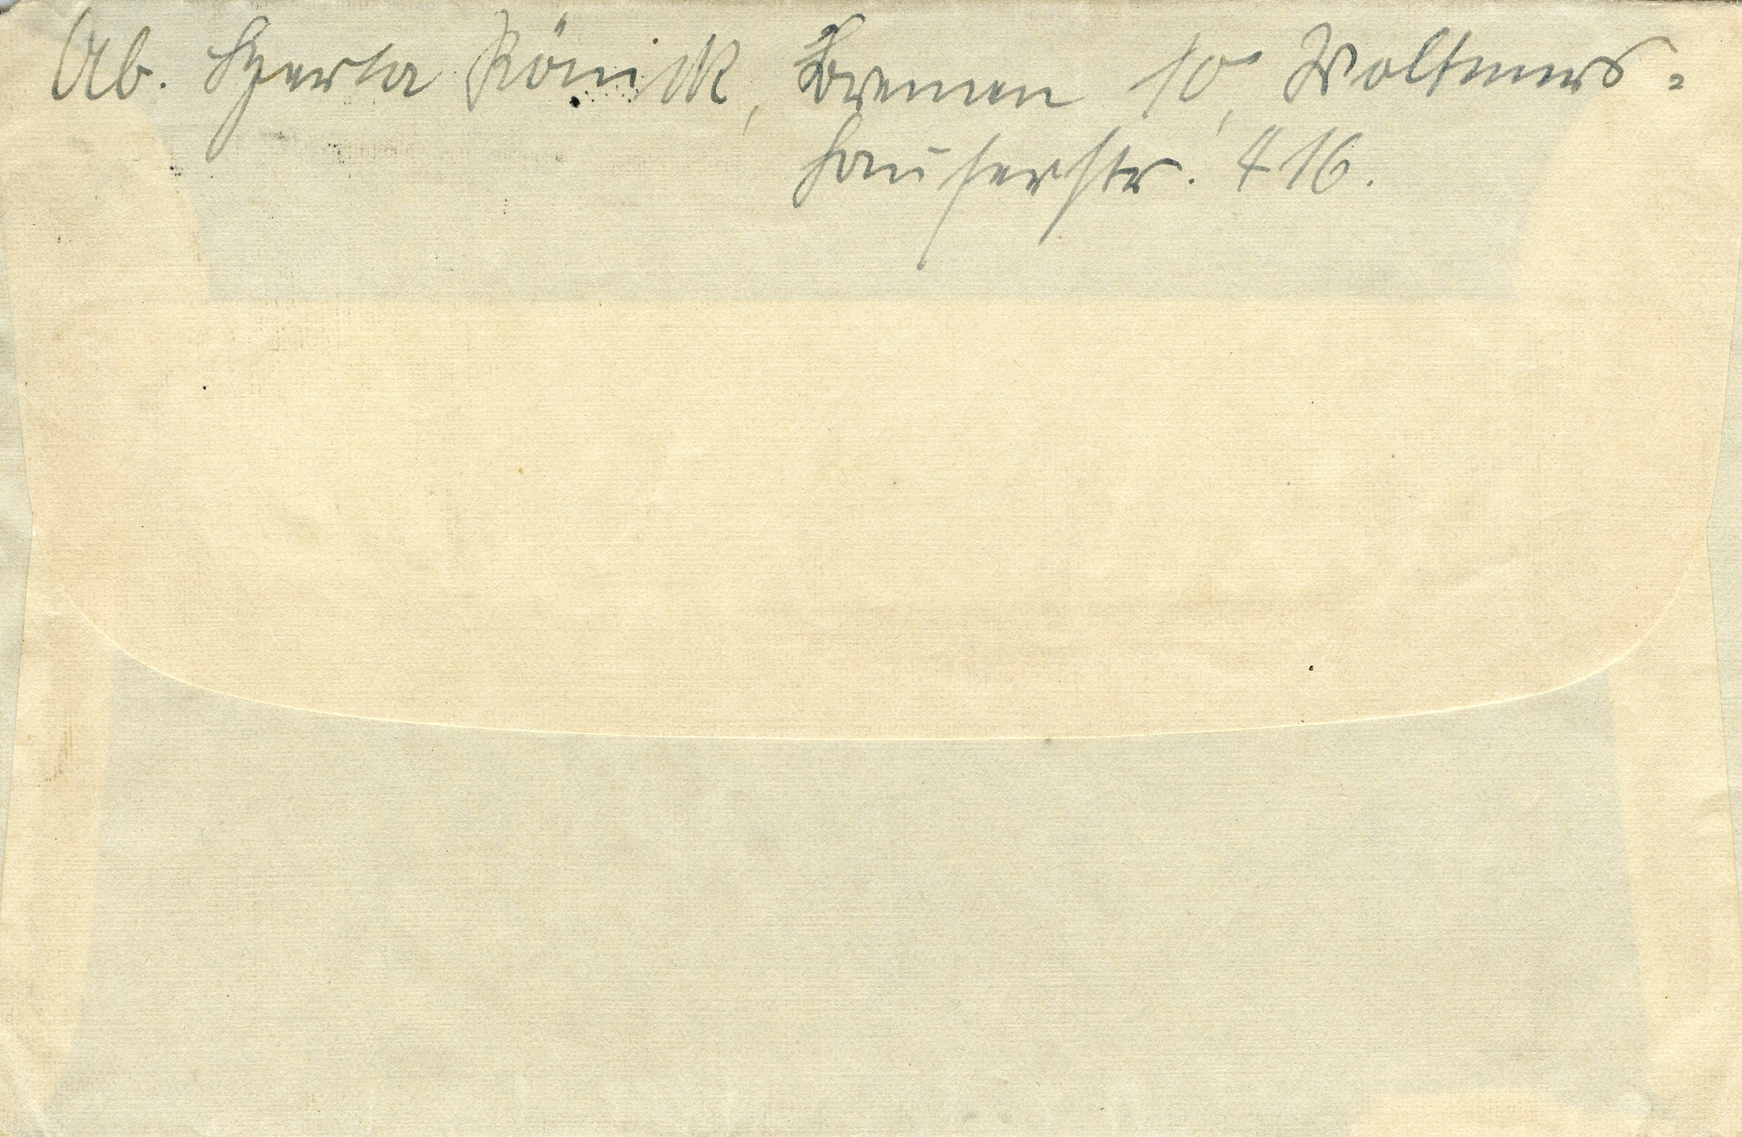 Ab. Herta Könick, Bremen 10, Woltmers=
hauserstr. 416.